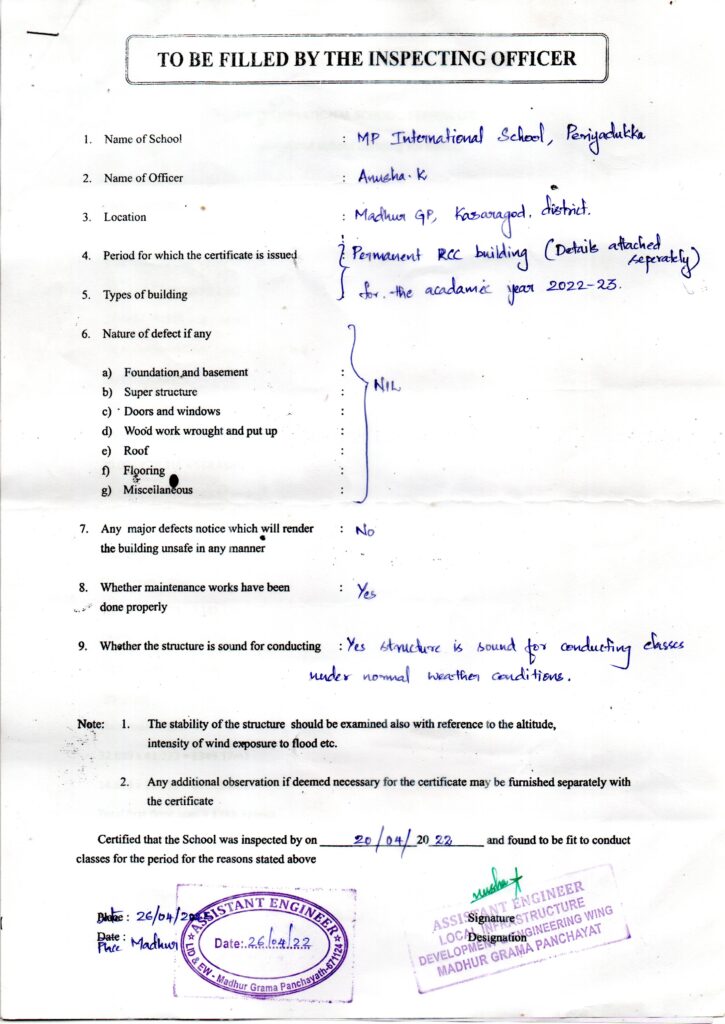 TO BE FILLED BY THE INSPECTING OFFICER
1. Name of School : MP International School, Periyadukka
2. Name of Officer : Anusha.K
3. Location : Madhur GP, Kasaragod. district.
4. Period for which the certificate is issued : Permanent RCC building (Details attached seperately)
5. Types of building : for the acadamic year 2022-23.
6. Nature of defect if any
a) Foundation and basement :
b) Super structure :
c) Doors and windows :
d) Wood work wrought and put up : NIL
e) Roof :
f) Flooring :
g) Miscellaneous :
7. Any major defects notice which will render : No
the building unsafe in any manner
8. Whether maintenance works have been : Yes
done properly
9. Whether the structure is sound for conducting : Yes structure is sound for conducting classes
under normal weather conditions.
Note: 1. The stability of the structure should be examined also with reference to the altitude,
intensity of wind exposure to flood etc.
2. Any additional observation if deemed necessary for the certificate may be furnished separately with
the certificate
Certified that the School was inspected by on 20/04/ 20 22 and found to be fit to conduct
classes for the period for the reasons stated above
: 26/04/
Date :
Place Madhur
ASSISTANT ENGINEER
Date: 26/04/22
LID & EW - Madhur Grama Panchayath-671124
Signature
Designation
ASSISTANT ENGINEER
LOCAL INFRASTRUCTURE
DEVELOPMENT ENGINEERING WING
MADHUR GRAMA PANCHAYAT